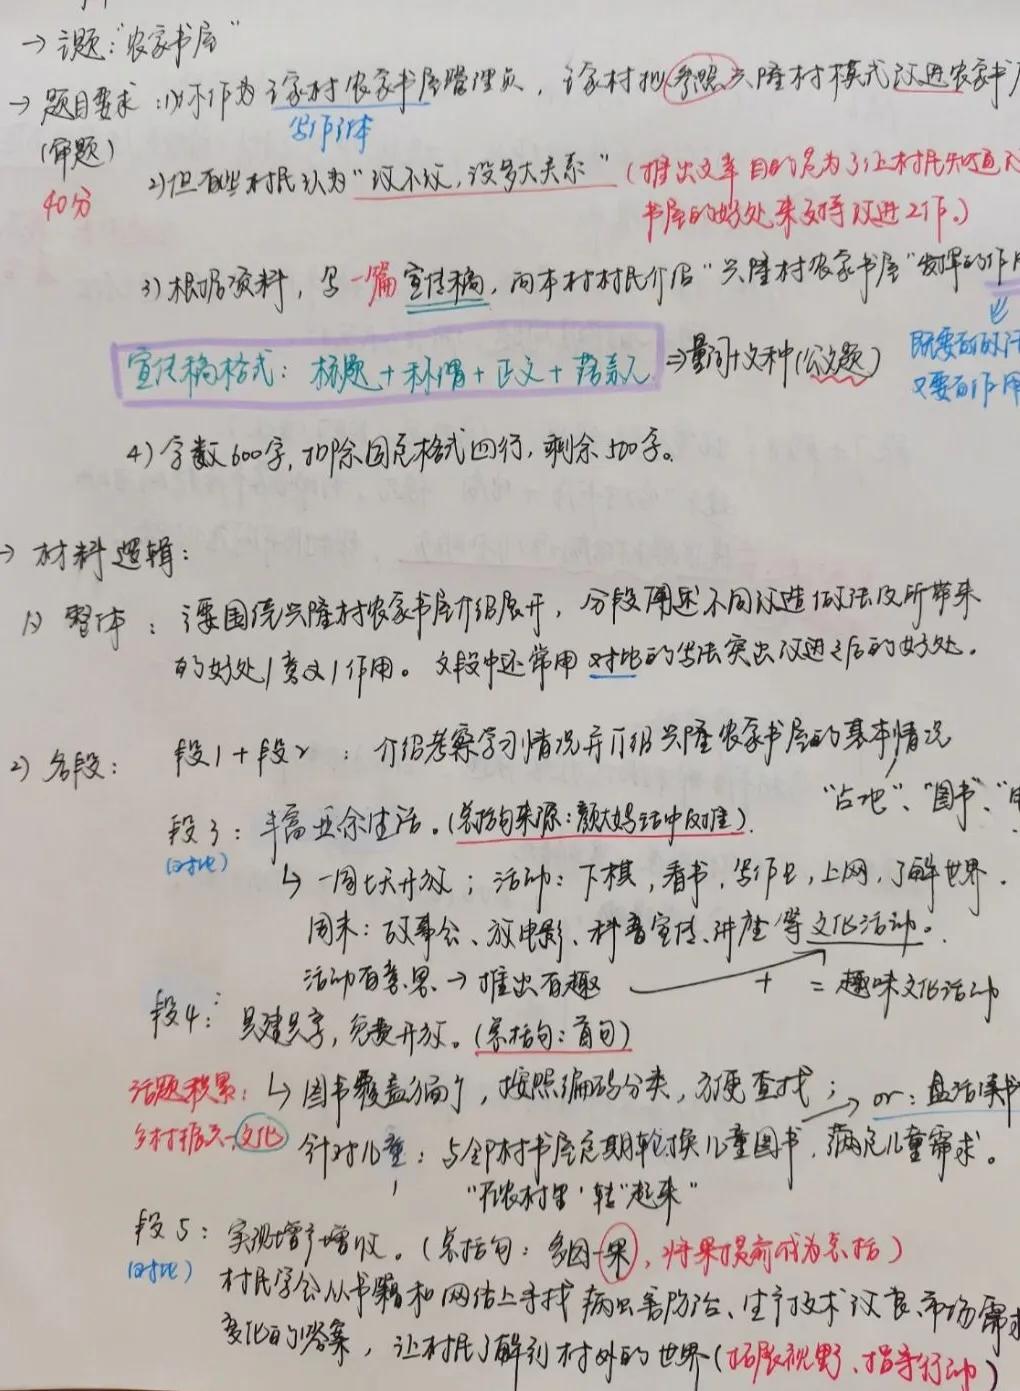 → 话题:“农家书屋”
→ 题目要求:1)你作为该家村农家书屋管理员,该家村拟参照兴隆村模式改进农家书屋
(审题)
写作主体
40分
2)但有些村民认为“改不改,没多大关系”(推出文章目的是为了让村民知道
书屋的好处来支持改进工作。)
3)根据资料,写一篇宣传稿,向本村村民介绍“兴隆村农家书屋”发挥的作用
宣传稿格式:标题+称谓+正文+落款 ⇒量词+文种(公文题)
既要有做法
又要有作用
4)字数600字,扣除固定格式四行,剩余500字。
→ 材料逻辑:
1)整体:主要围绕兴隆村农家书屋介绍展开,分段阐述不同改造做法及所带来
的好处/意义/作用。文段中还常用对比的写法突出改进之后的好处。
2)各段:段1+段2:介绍考察学习情况并介绍兴隆农家书屋的基本情况
“占地”、“图书”、
段3:丰富业余生活。(总括句来源:颜大妈话中反推)
(对比)
↳ 一周七天开放;活动:下棋,看书,写作业,上网,了解世界.
周末:故事会、放电影、科普宣传、讲座等文化活动。
活动有意思→推出有趣 + =趣味文化活动
段4:共建共享,免费开放。(总括句:首句)
话题积累:↳ 图书覆盖编个,按照编码分类,方便查找;→ or:盘活读书
乡村振兴-文化 针对儿童:与邻村书屋定期轮换儿童图书,满足儿童需求。
“在农村里‘转’起来”
段5:实现增产增收。(总括句:多因一果,将果提前成为总括)
(对比) 村民学会从书籍和网络上寻找病虫害防治、生产技术改良、市场需求
变化的答案,让村民了解到村外的世界(拓展视野、指导行动)